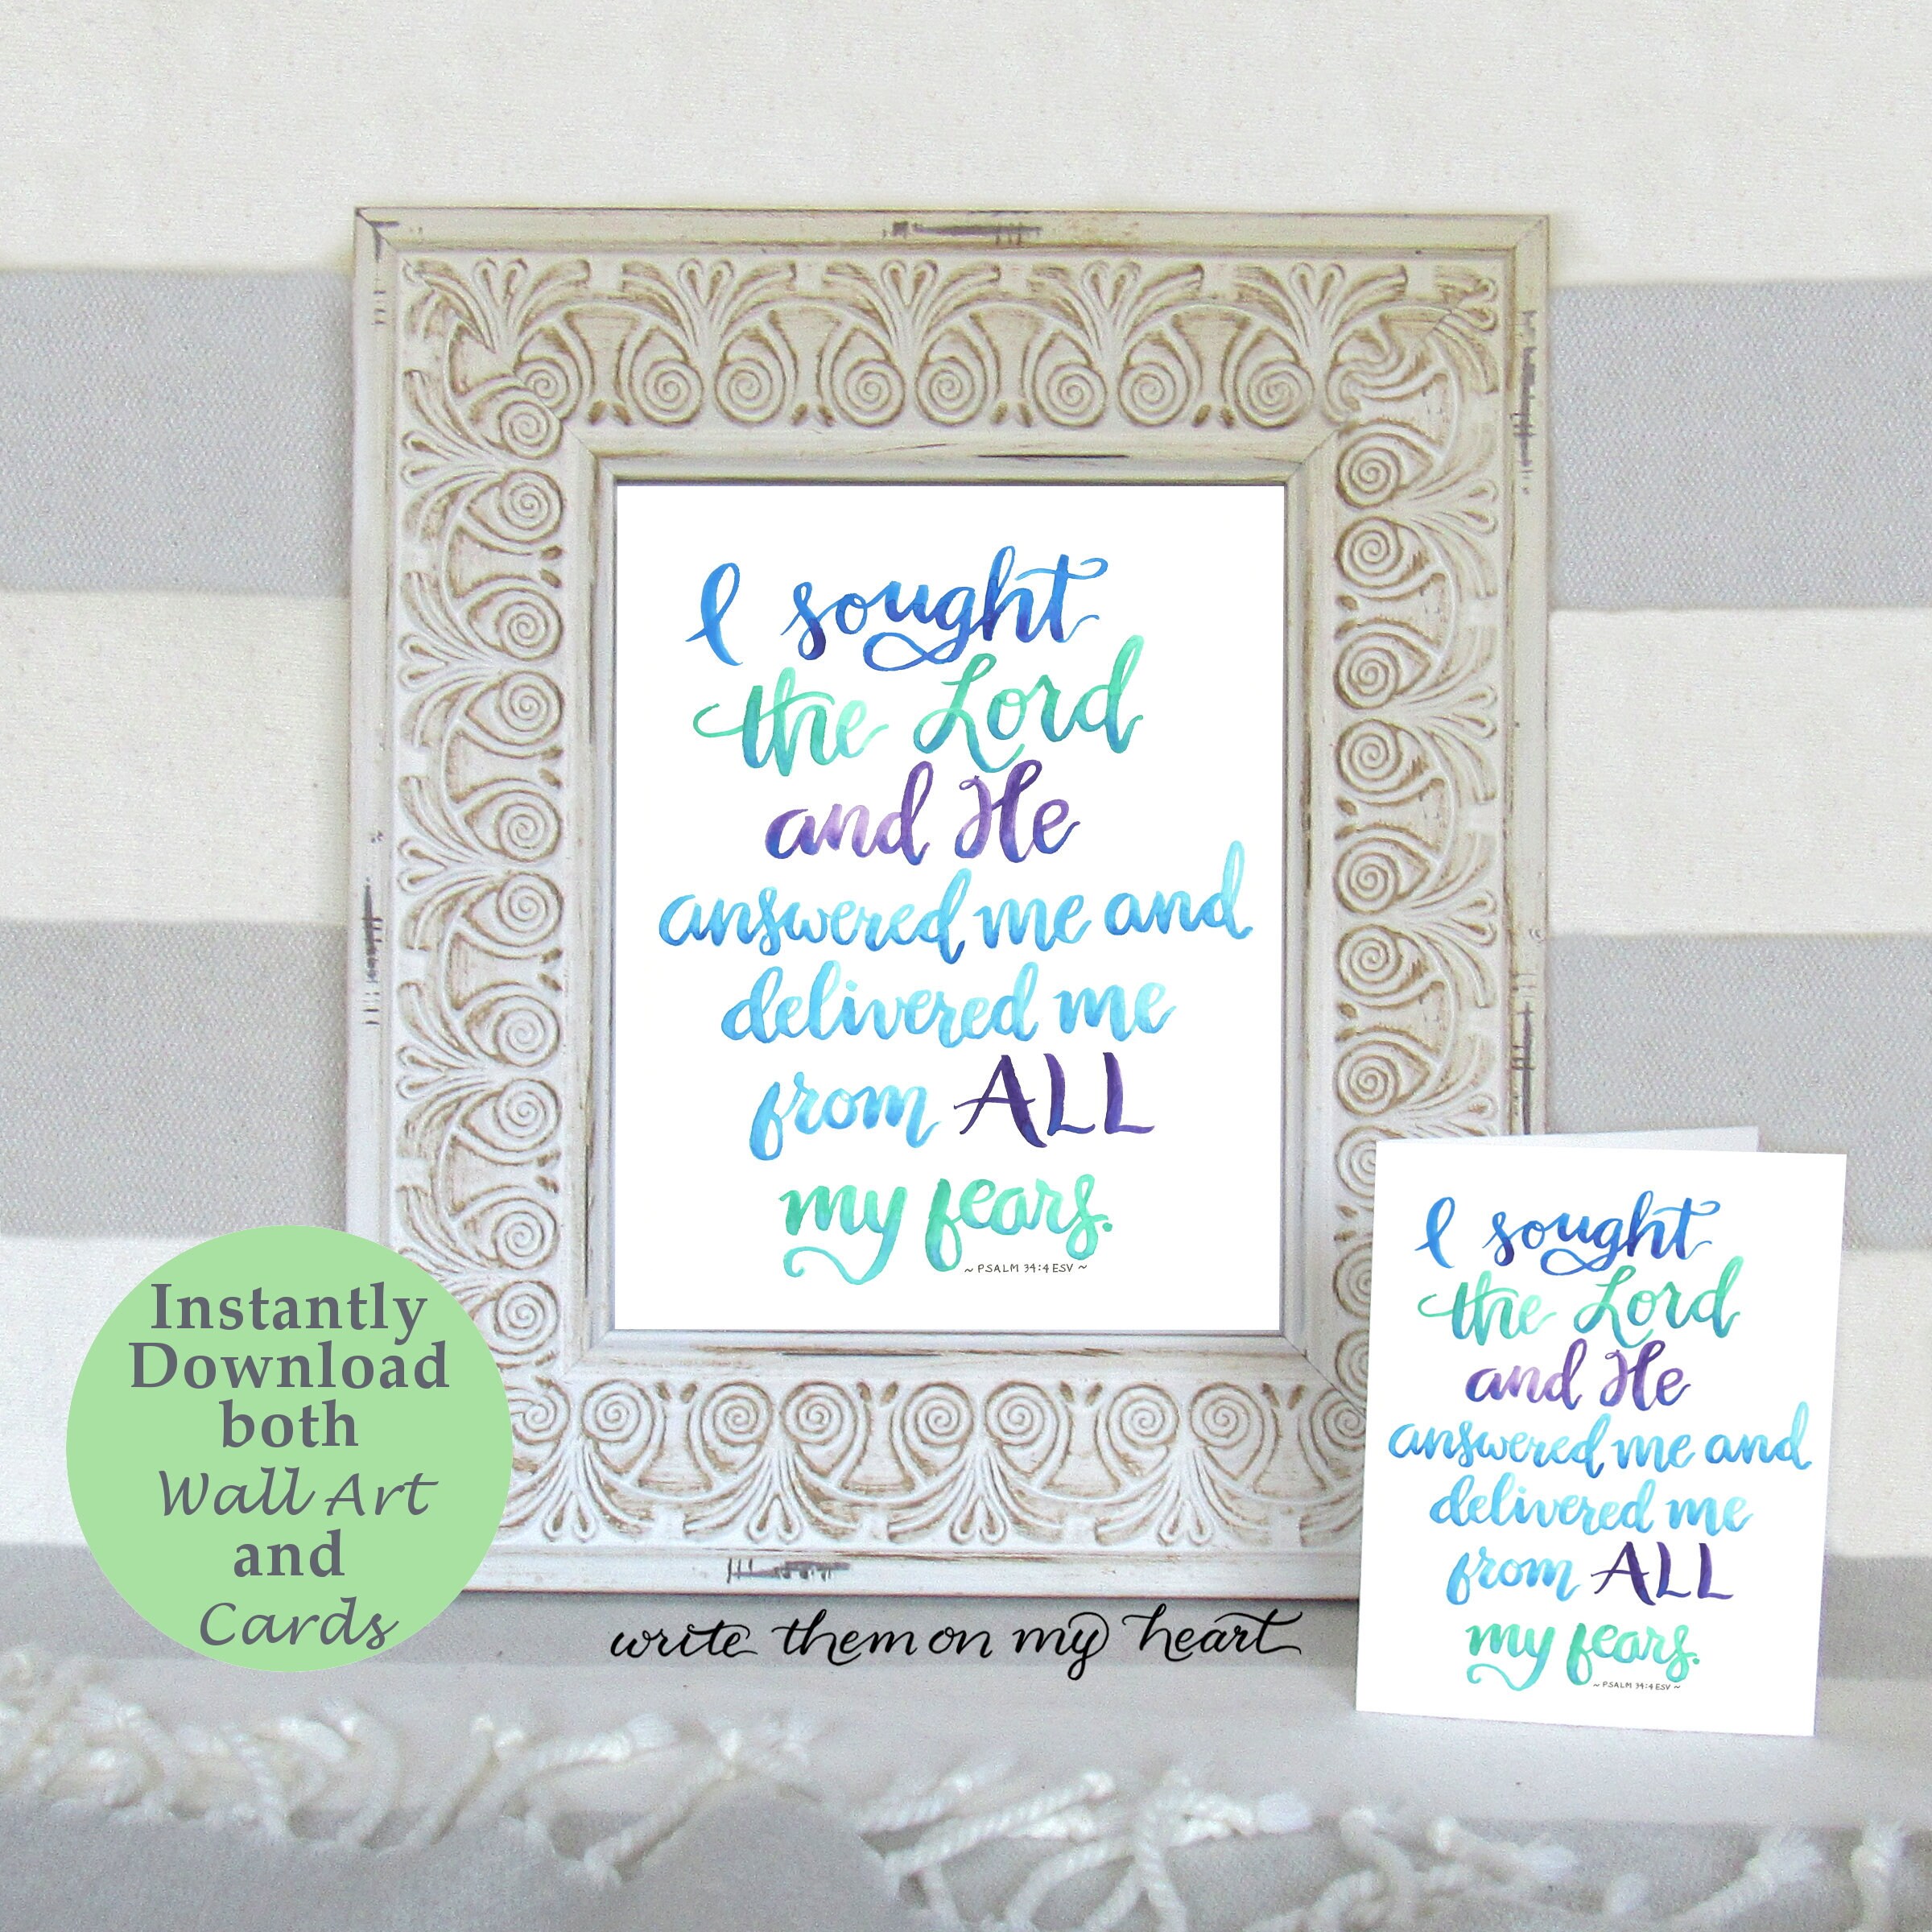 I sought
the Lord
and He
answered me and
delivered me
from ALL
my fears.
~ PSALM 34:4 ESV ~
Instantly
Download
both
Wall Art
and
Cards
write them on my heart
I sought
the Lord
and He
answered me and
delivered me
from ALL
my fears.
~ PSALM 34:4 ESV ~